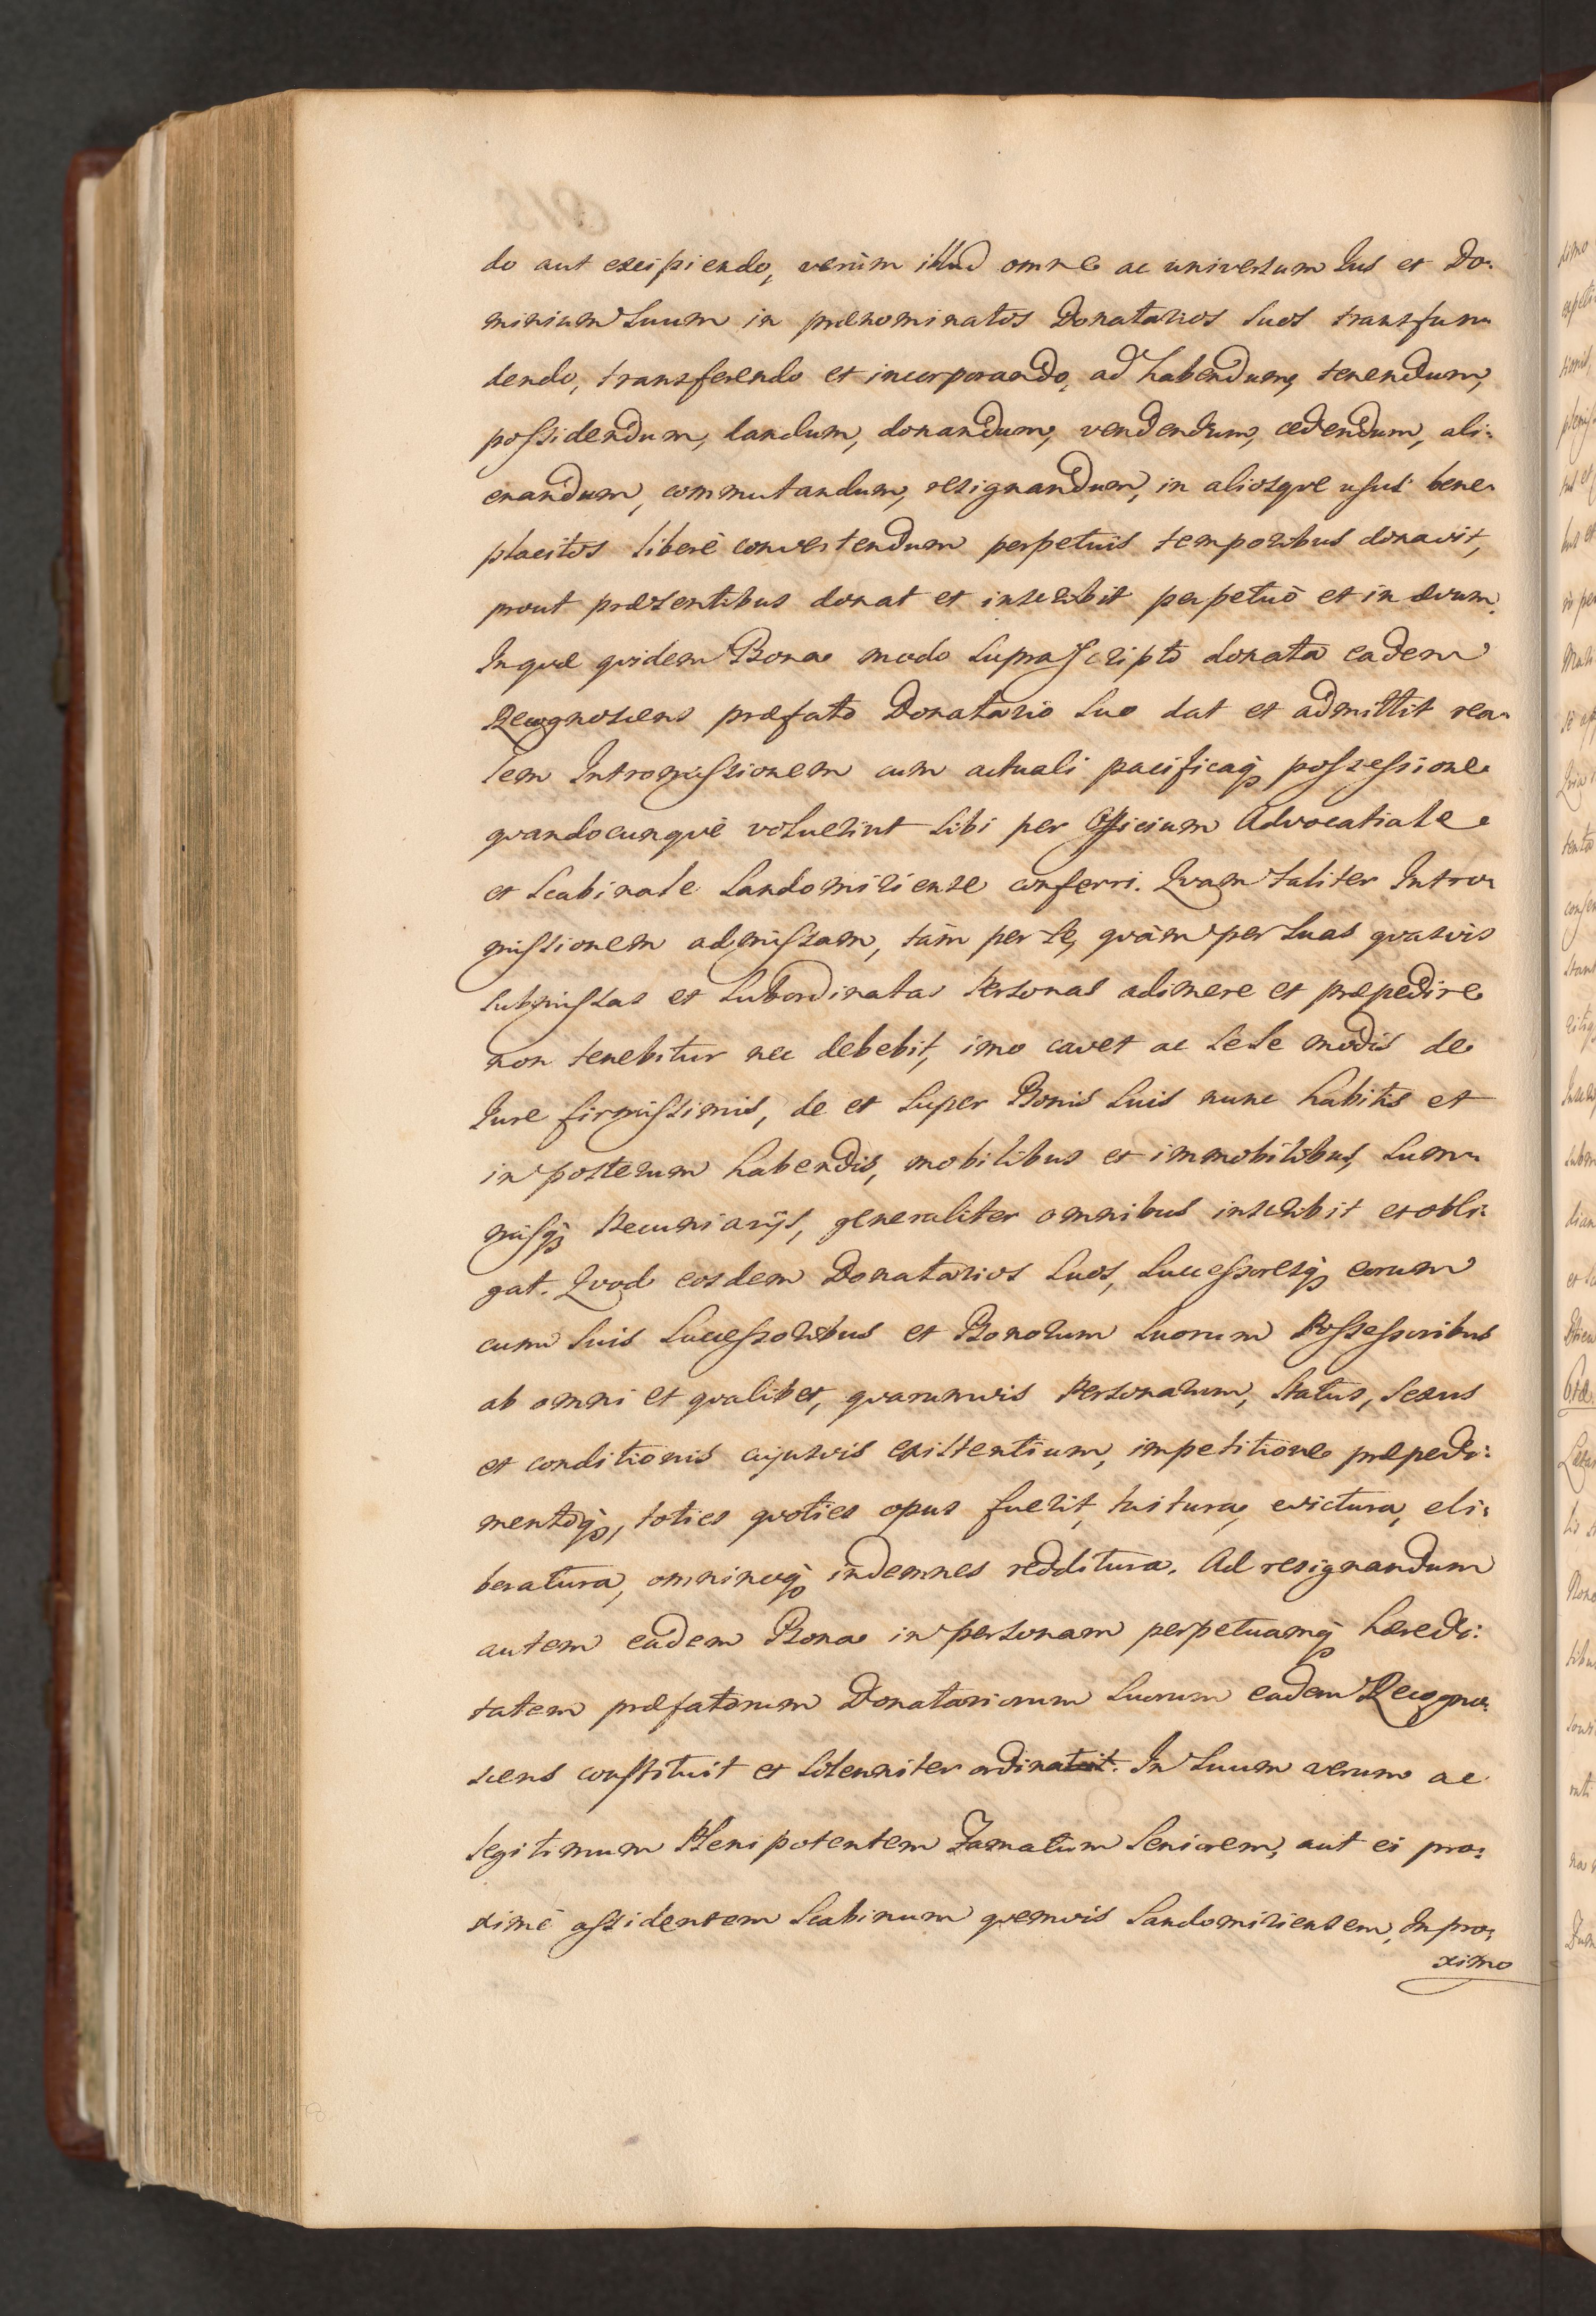 do aut excipiendo, verùm illud omne ac universum Jus et Do:
minium Suum in prænominatos Donatarios Suos transfun:
dendo, transferendo et incorporando, ad habendum, tenendum,
possidendum, dandum, donandum, vendendum, cedendum, ali:
enandum, commutandum, resignandum, in aliosqve usus bene:
placitos liberè convertendum perpetuis temporibus donavit,
prout præsentibus donat et inscribit perpetuò et in ævum.
Inqvæ qvidem Bona modo Suprascripto donata eadem
Recognoscens præfato Donatario Suo dat et admittit rea:
lem Intromissionem cum actuali pacificaq̃ possessione
qvandocunqvè voluerint Sibi per Officium Advocatiale
et Scabinale Sandomiriense conferri. Qvam taliter Intro:
missionem admissam, tàm per Se, qvàm per Suas qvasvis
Submissas et Subordinatas Personas adimere et præpedire
non tenebitur nec debebit, imo cavet ac Sese modis de
Jure firmissimis, de et Super Bonis Suis nunc habitis et
in posterum habendis, mobilibus et immobilibus, Sum:
misq̃ Pecuniarijs, generaliter omnibus inscribit et obli:
gat. Qvod eosdem Donatarios Suos, Successoresq̃ eorum
cum Suis Successoribus et Bonorum Suorum Possessoribus
ab omni et qvalibet, qvarumvis Personarum, Status, Sexus
et conditionis cujusvis existentium, impetitione præpedi:
mentoq̃, toties qvoties opus fuerit, tuitura, evictura, eli:
beratura, omninoq̃ indemnes redditura. Ad resignandum
autem eadem Bona in personam perpetuamq̃ hæredi:
tatem præfatorum Donatariorum Suorum eadem Recogno:
scens constituit et Solenniter ordinatuit. In Suum verum ac
legitimum Plenipotentem Famatum Seniorem, aut ei pro:
ximè assidentem Scabinum qvemvis Sandomiriensem, In pro:
ximo